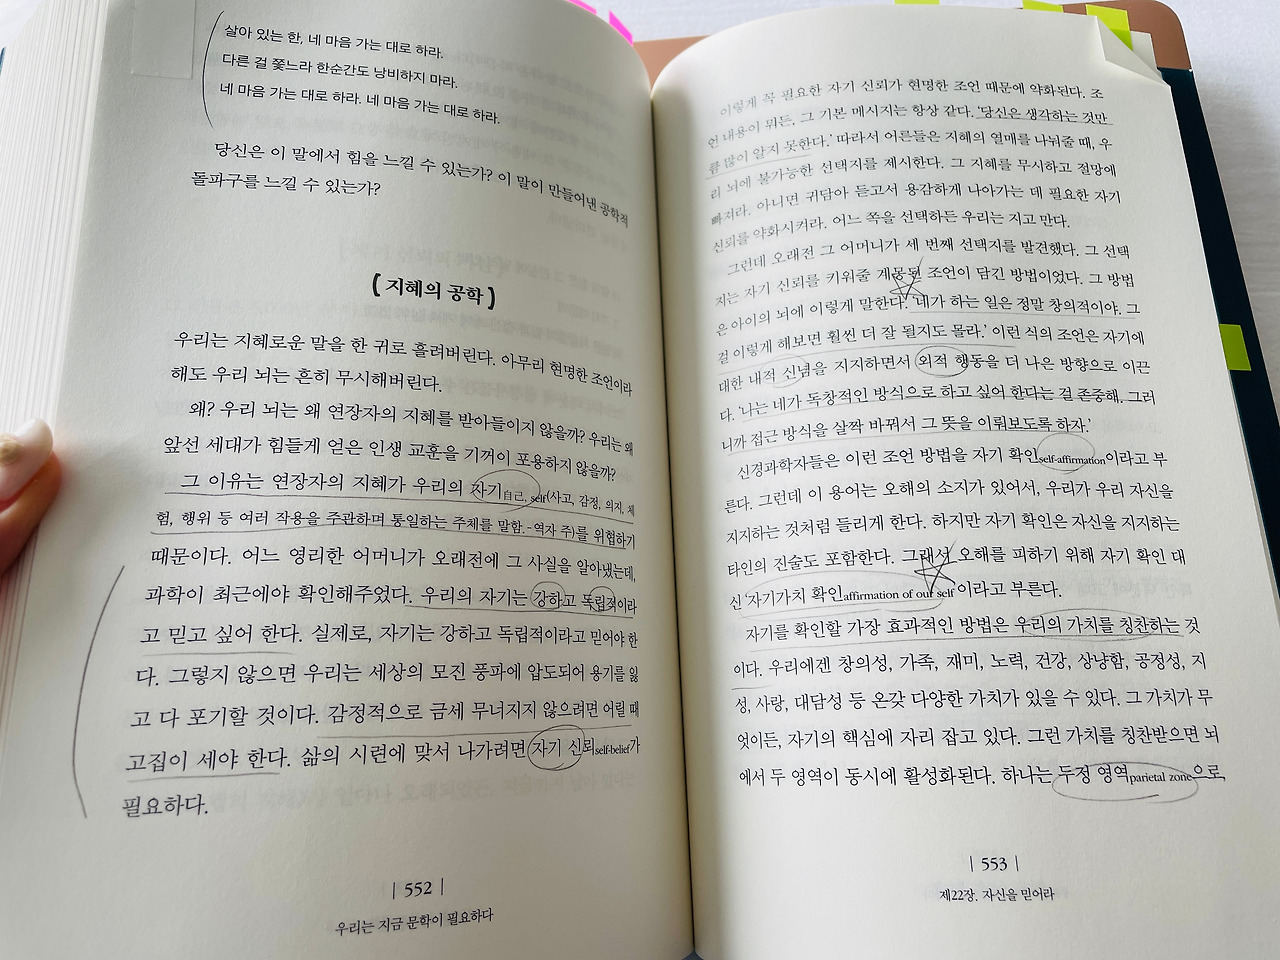 살아 있는 한, 네 마음 가는 대로 하라.
다른 걸 쫓느라 한순간도 낭비하지 마라.
네 마음 가는 대로 하라. 네 마음 가는 대로 하라.
당신은 이 말에서 힘을 느낄 수 있는가? 이 말이 만들어낸 공학적
돌파구를 느낄 수 있는가?
( 지혜의 공학 )
우리는 지혜로운 말을 한 귀로 흘려버린다. 아무리 현명한 조언이라
해도 우리 뇌는 흔히 무시해버린다.
왜? 우리 뇌는 왜 연장자의 지혜를 받아들이지 않을까? 우리는 왜
앞선 세대가 힘들게 얻은 인생 교훈을 기꺼이 포용하지 않을까?
그 이유는 연장자의 지혜가 우리의 자기自己, self(사고, 감정, 의지, 체
험, 행위 등 여러 작용을 주관하며 통일하는 주체를 말함.-역자 주)를 위협하기
때문이다. 어느 영리한 어머니가 오래전에 그 사실을 알아냈는데,
과학이 최근에야 확인해주었다. 우리의 자기는 강하고 독립적이라
고 믿고 싶어 한다. 실제로, 자기는 강하고 독립적이라고 믿어야 한
다. 그렇지 않으면 우리는 세상의 모진 풍파에 압도되어 용기를 잃
고 다 포기할 것이다. 감정적으로 금세 무너지지 않으려면 어릴 때
고집이 세야 한다. 삶의 시련에 맞서 나가려면 자기 신뢰self-belief가
필요하다.
| 552 |
우리는 지금 문학이 필요하다
이렇게 꼭 필요한 자기 신뢰가 현명한 조언 때문에 약화된다. 조
언 내용이 뭐든, 그 기본 메시지는 항상 같다. '당신은 생각하는 것만
큼 많이 알지 못한다.' 따라서 어른들은 지혜의 열매를 나눠줄 때, 우
리 뇌에 불가능한 선택지를 제시한다. 그 지혜를 무시하고 절망에
빠져라. 아니면 귀담아 듣고서 용감하게 나아가는 데 필요한 자기
신뢰를 약화시켜라. 어느 쪽을 선택하든 우리는 지고 만다.
그런데 오래전 그 어머니가 세 번째 선택지를 발견했다. 그 선택
지는 자기 신뢰를 키워줄 계몽된 조언이 담긴 방법이었다. 그 방법
은 아이의 뇌에 이렇게 말한다. '네가 하는 일은 정말 창의적이야. 그
걸 이렇게 해보면 훨씬 더 잘 될지도 몰라.' 이런 식의 조언은 자기에
대한 내적 신념을 지지하면서 외적 행동을 더 나은 방향으로 이끈
다. '나는 네가 독창적인 방식으로 하고 싶어 한다는 걸 존중해. 그러
니까 접근 방식을 살짝 바꿔서 그 뜻을 이뤄보도록 하자.'
신경과학자들은 이런 조언 방법을 자기 확인self-affirmation이라고 부
른다. 그런데 이 용어는 오해의 소지가 있어서, 우리가 우리 자신을
지지하는 것처럼 들리게 한다. 하지만 자기 확인은 자신을 지지하는
타인의 진술도 포함한다. 그래서 오해를 피하기 위해 자기 확인 대
신 '자기가치 확인affirmation of our self'이라고 부른다.
자기를 확인할 가장 효과적인 방법은 우리의 가치를 칭찬하는 것
이다. 우리에겐 창의성, 가족, 재미, 노력, 건강, 상냥함, 공정성, 지
성, 사랑, 대담성 등 온갖 다양한 가치가 있을 수 있다. 그 가치가 무
엇이든, 자기의 핵심에 자리 잡고 있다. 그런 가치를 칭찬받으면 뇌
에서 두 영역이 동시에 활성화된다. 하나는 두정 영역parietal zone으로,
| 553 |
제22장. 자신을 믿어라